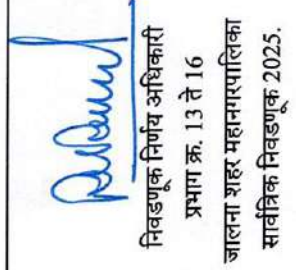 निवडणूक निर्णय अधिकारी
प्रभाग क्र. 13 ते 16
जालना शहर महानगरपालिका
सार्वत्रिक निवडणूक 2025.